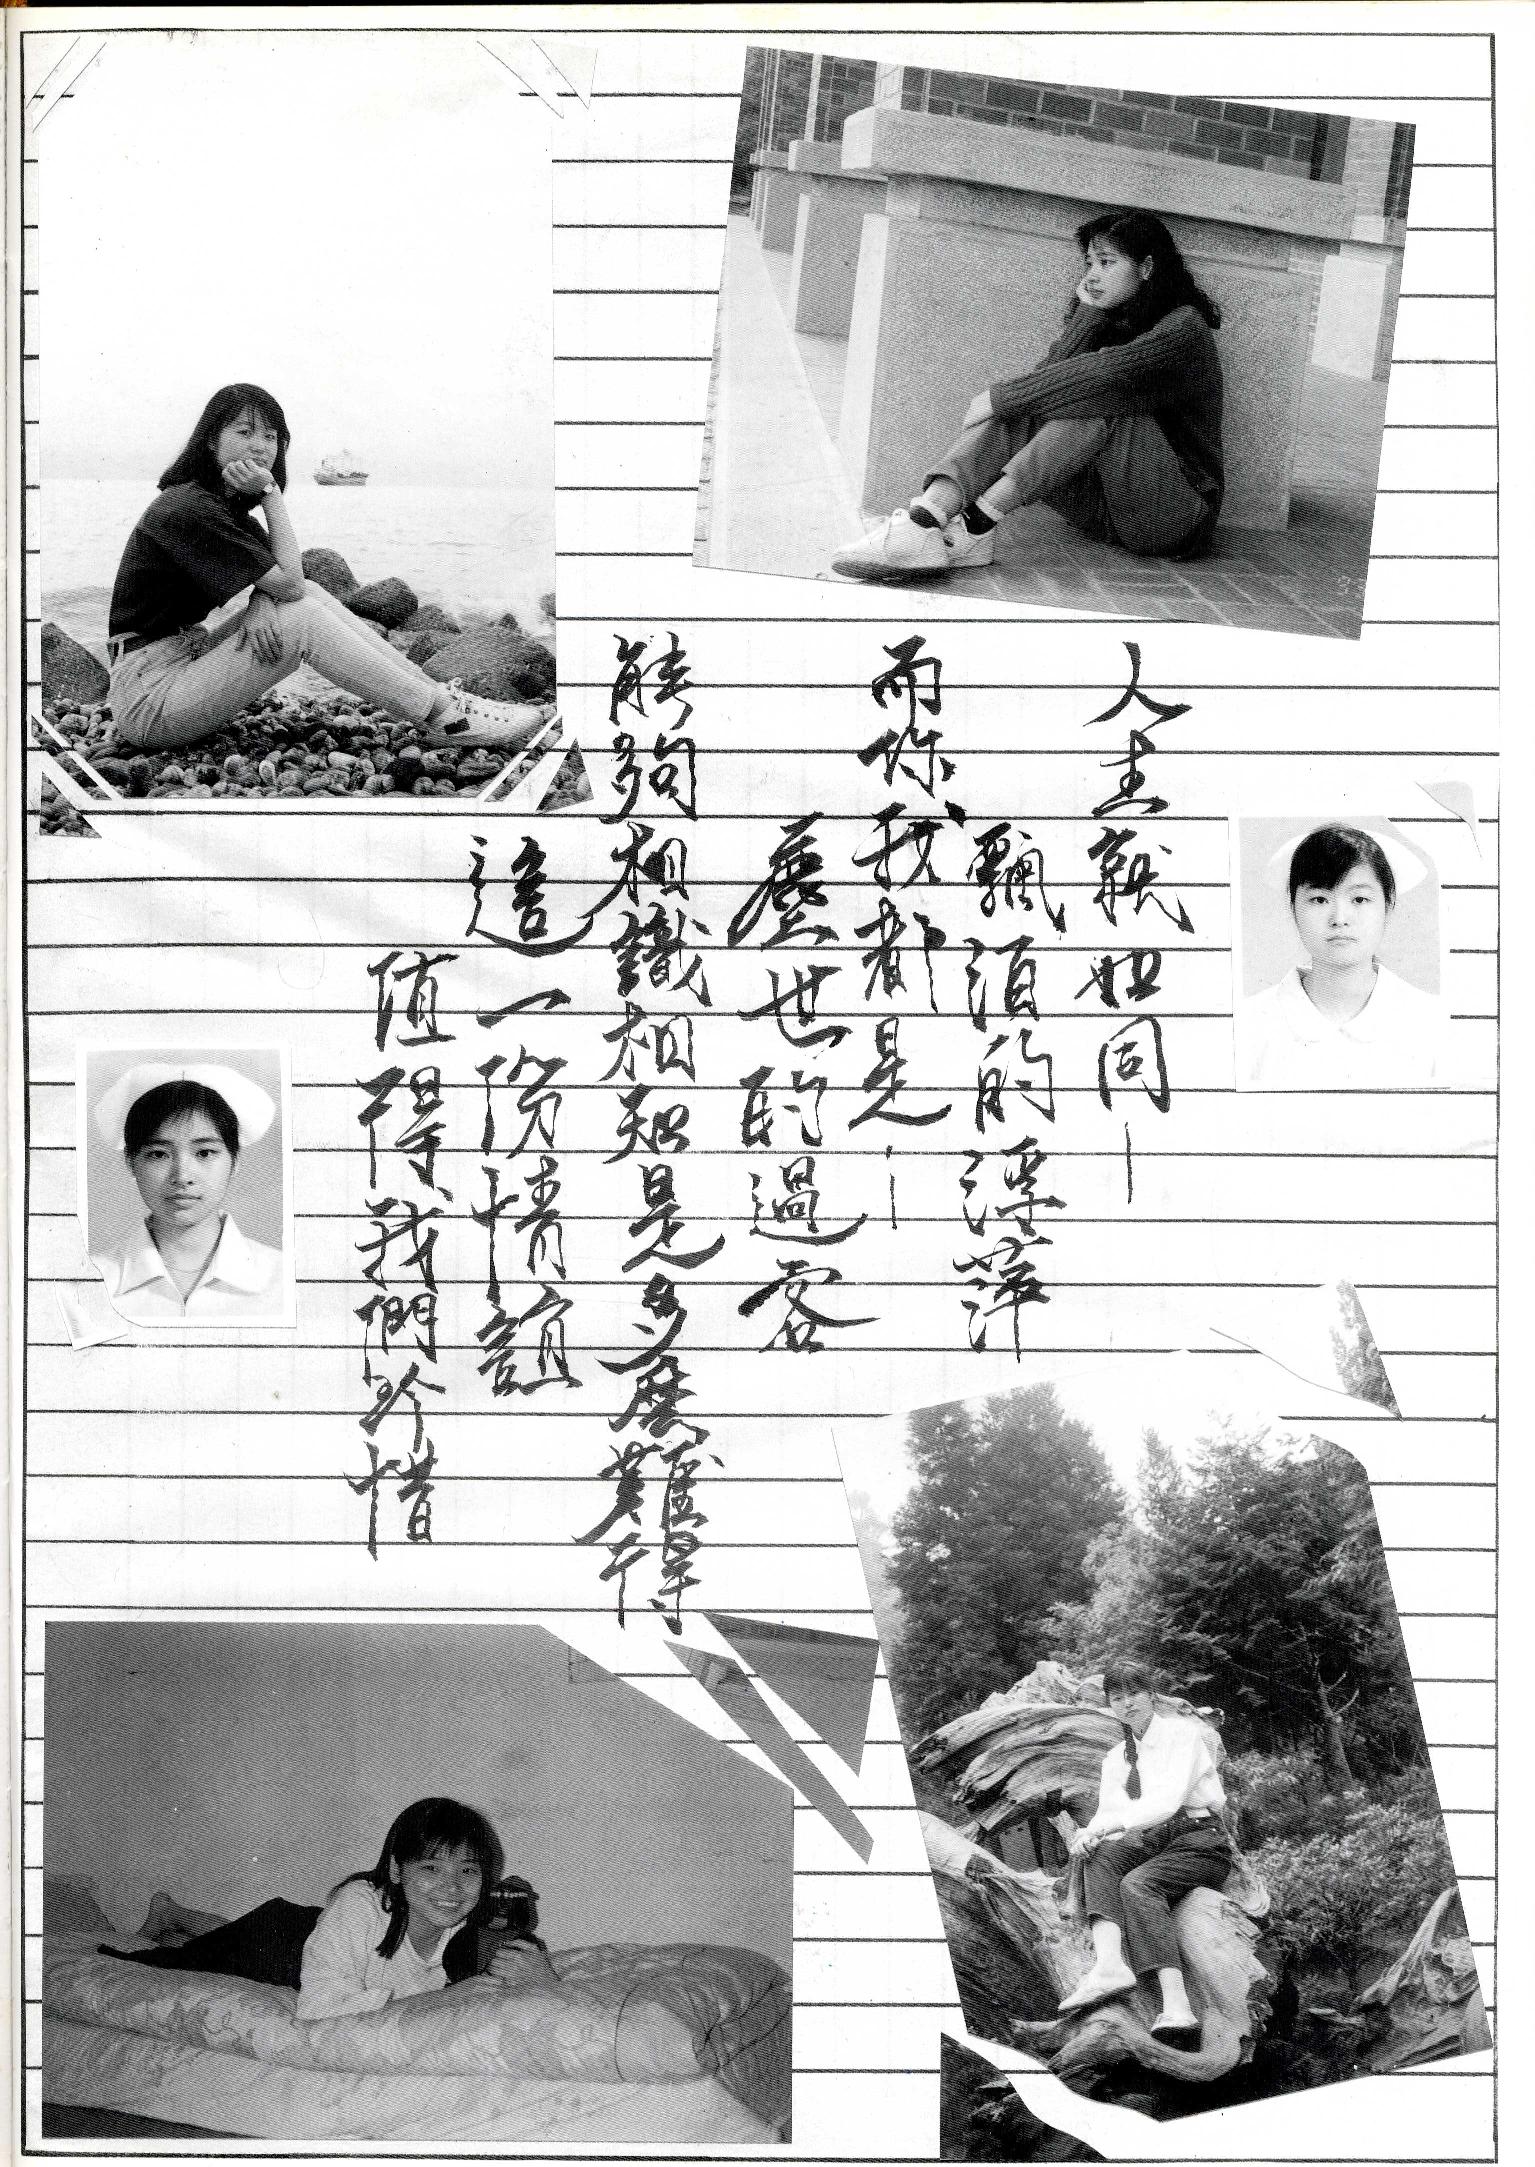 人生就如同—
飄泊的浮萍
而你我都是—
塵世的過客
能夠相識相知是多麼難得
這一份情誼
值得我們珍惜